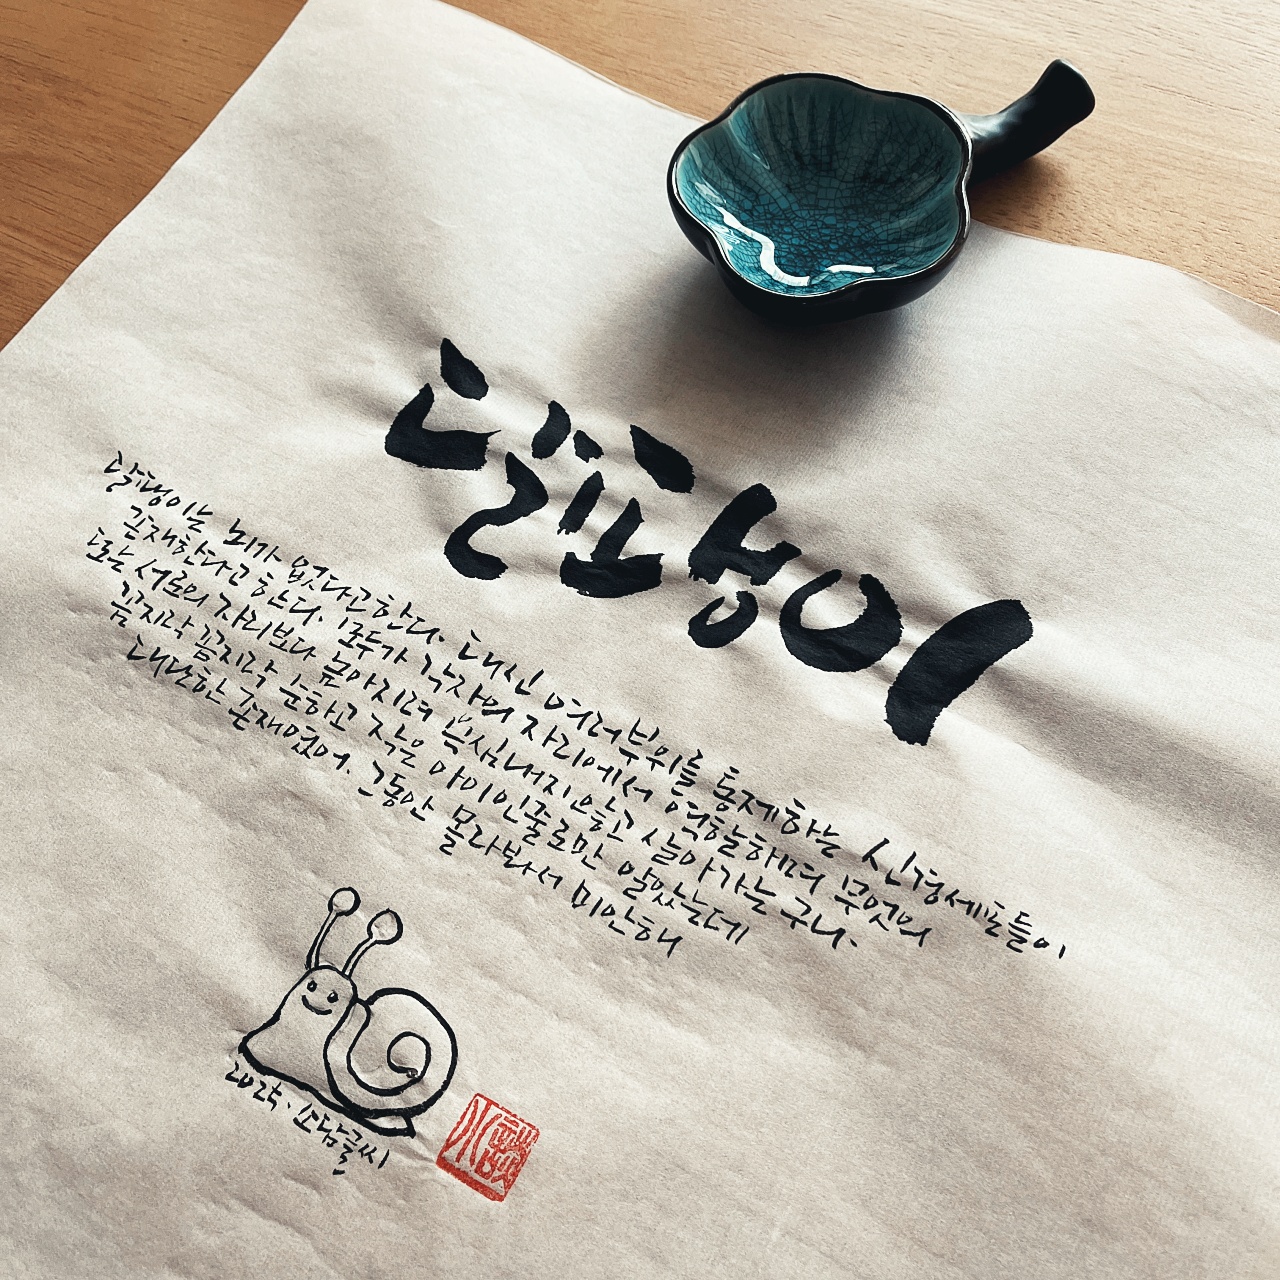 달팽이
달팽이는 뇌가 없다고한다. 대신 여러부위를 통제하는 신경세포들이
존재한다고 한다. 모두가 각자의 자리에서 역할하며 무엇의
모는 서로의 자리보다 높아지려 욕심내지않고 살아가는 구나.
꼼지락 꼼지락 순하고 작은 아이인줄로만 알았는데
대단한 존재였어. 그동안 몰라봐서 미안해
2025. 소담글씨